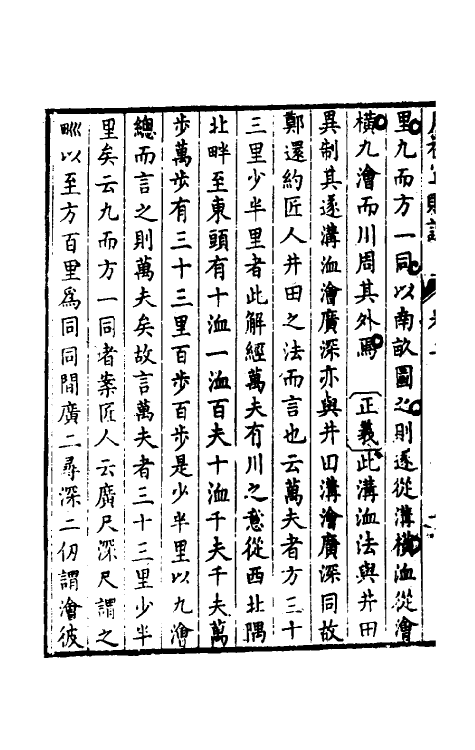 里九而方一同以南畝圖之則遂從溝橫洫從澮
橫九澮而川周其外焉　正義此溝洫法與井田
異制其遂溝洫澮廣深亦與井田溝澮廣深同故
鄭還約匠人井田之法而言也云萬夫者方三十
三里少半里者此解經萬夫有川之意從西北隅
北畔至東頭有十洫一洫百夫十洫千夫千夫萬
步萬步有三十三里百步百步是少半里以九澮
總而言之則萬夫矣故言萬夫者三十三里少半
里矣云九而方一同者案匠人云廣尺深尺謂之
𤰝以至方百里爲同同間廣二尋深二仞謂澮彼